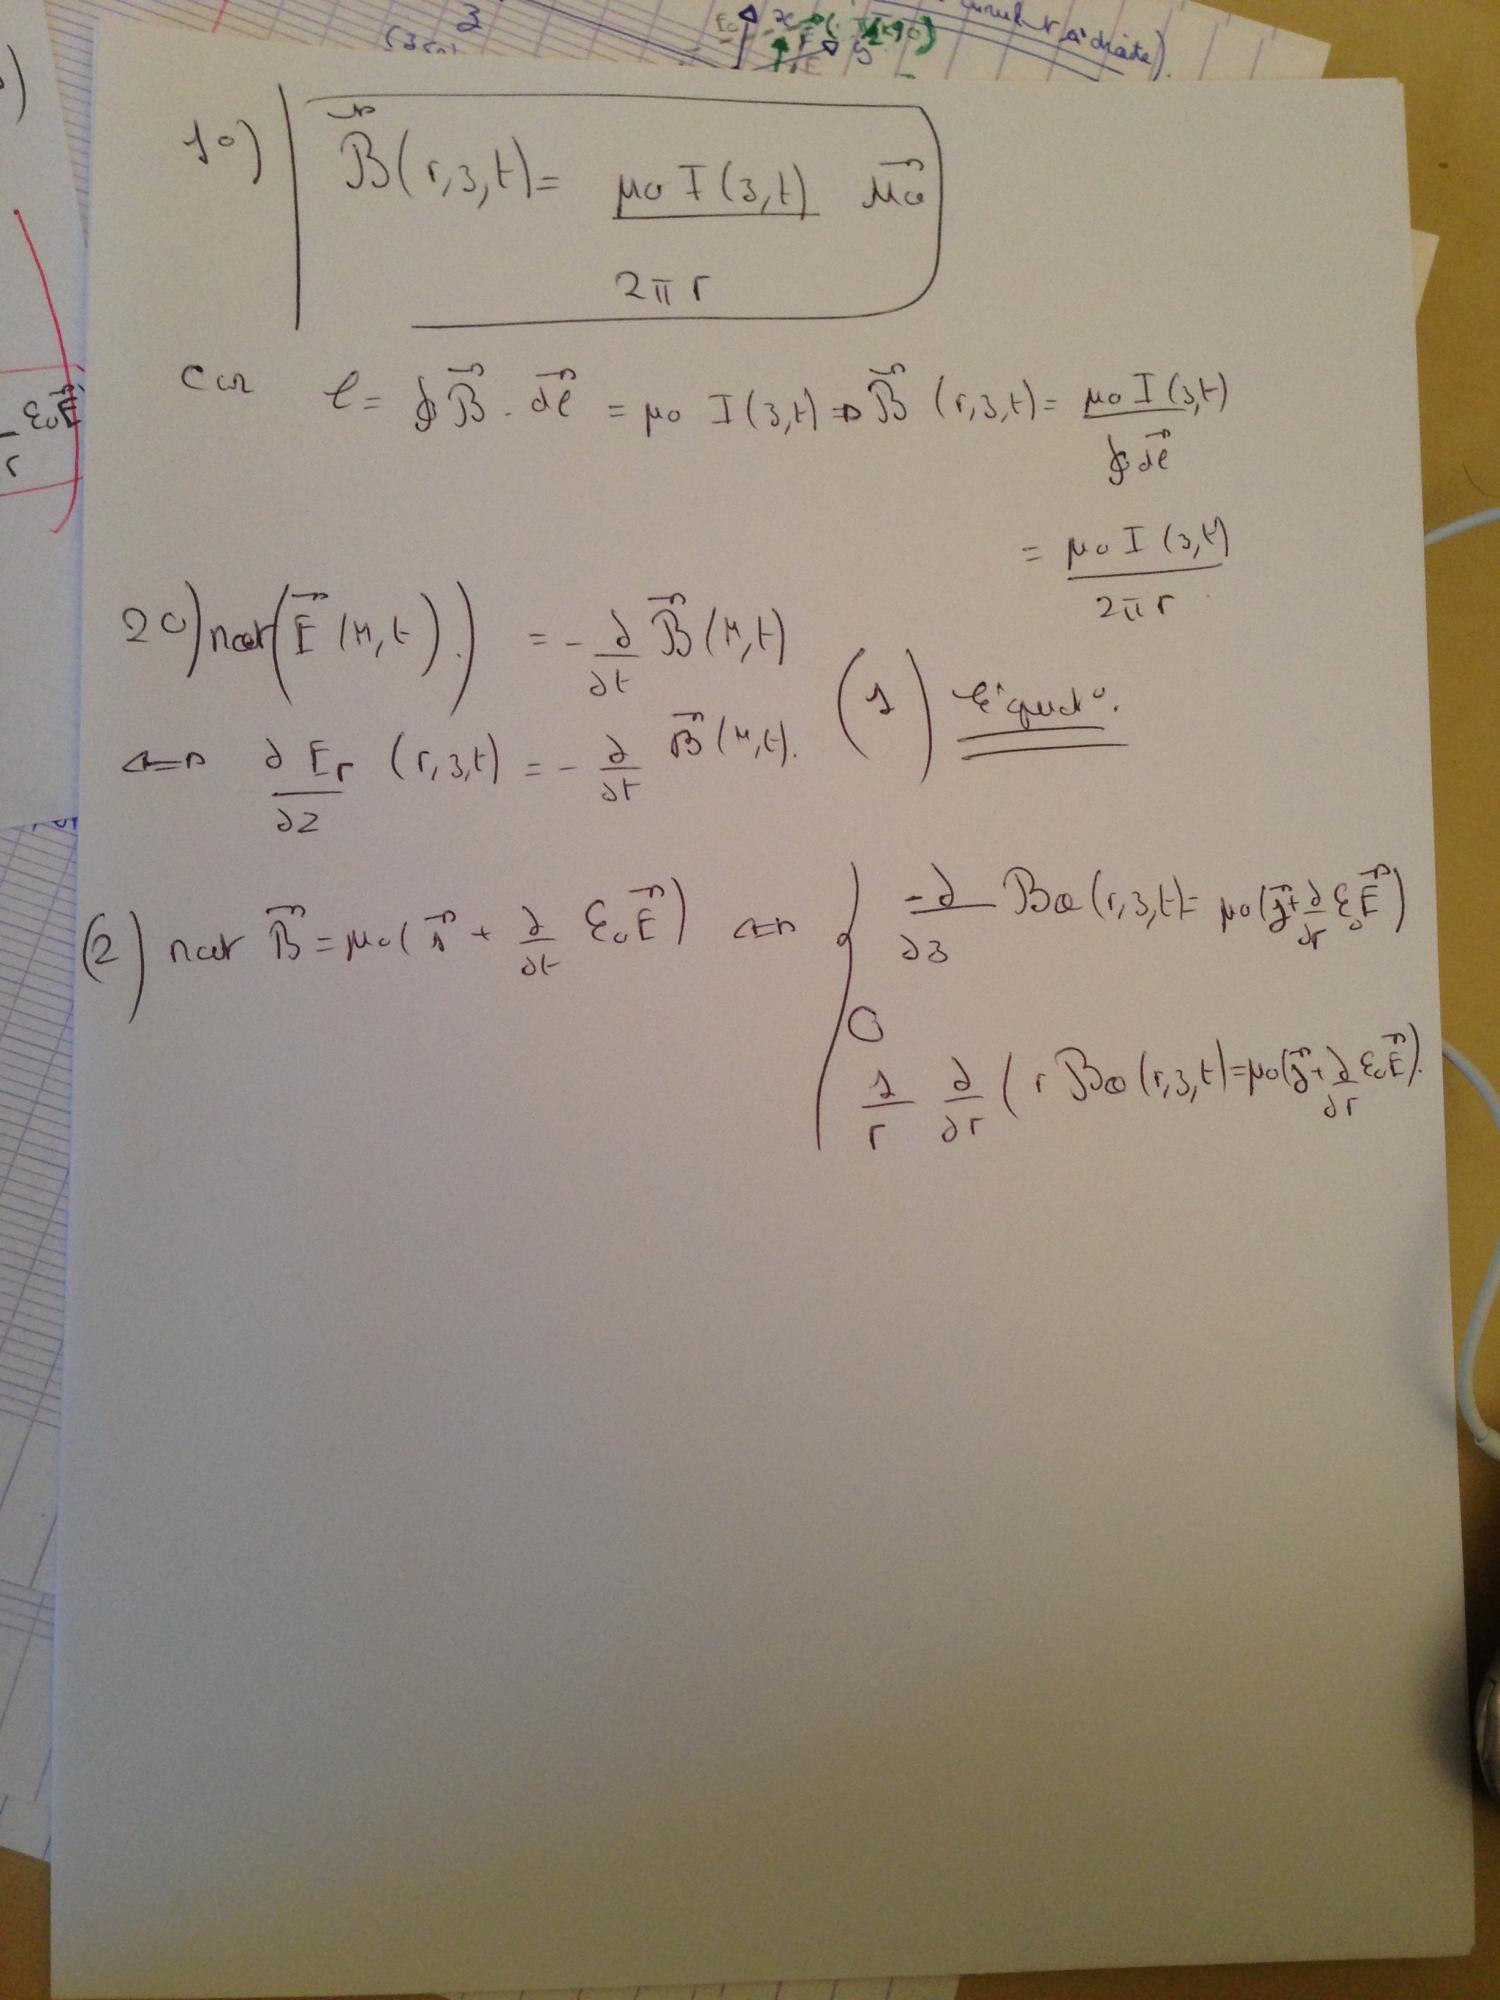 3
curul t à droite).
ε₀E⃗
r
1°) B⃗(r,z,t) = μ₀ I(z,t) / 2πr u⃗θ
Car C = ∮ B⃗ . dl⃗ = μ₀ I(z,t) ⇒ B⃗ (r,z,t) = μ₀ I(z,t) / ∮ dl⃗
= μ₀ I(z,t) / 2πr .
2°) rot(E⃗ (M,t).) = - ∂/∂t B⃗(M,t)
⇔ ∂Er/∂z (r,z,t) = - ∂/∂t B⃗(M,t). (1) Equat°.
(2) rot B⃗ = μ₀( j⃗ + ∂/∂t ε₀E⃗) ⇔ { -∂/∂z Bθ(r,z,t) = μ₀(j⃗ + ∂/∂r ε₀E⃗)
0
1/r ∂/∂r ( r Bθ(r,z,t) = μ₀(j⃗ + ∂/∂r ε₀E⃗).